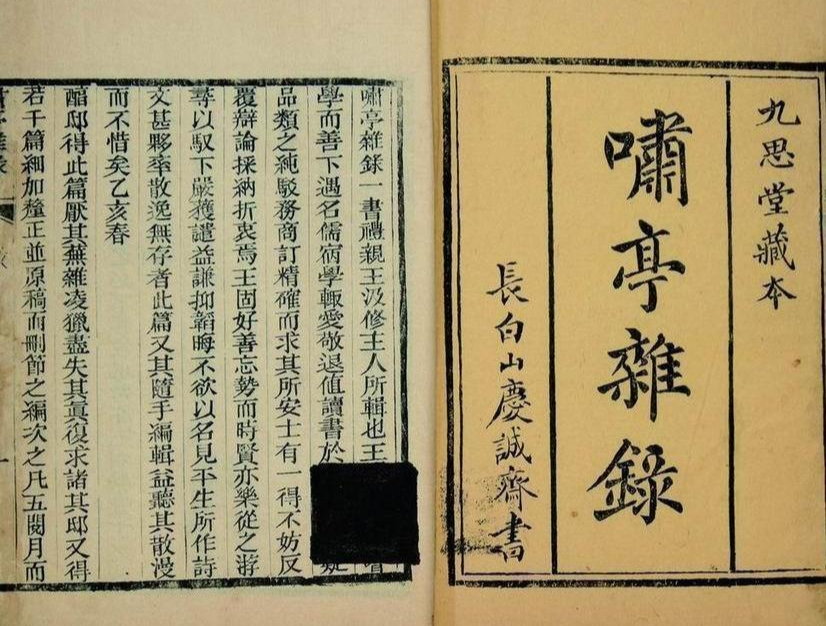 九思堂藏本
嘯亭雜錄
長白山慶誠齋書
嘯亭雜錄一書禮親王汲修主人所輯也王嗜
學而善下遇名儒宿學輒愛敬退值讀書於疑
品類之純駁務商訂精確而求其所安士有一得不妨反
覆辯論採納折衷焉王固好善忘勢而時賢亦樂從之游
尋以馭下嚴獲譴益謙抑韜晦不欲以名見平生所作詩
文甚夥率散逸無存者此篇又其隨手編輯益聽其散漫
而不惜矣乙亥春
醕邸得此篇厭其蕪雜凌獵盡失其眞復求諸其邸又得
若干篇細加釐正並原稿而刪節之編次之凡五閱月而